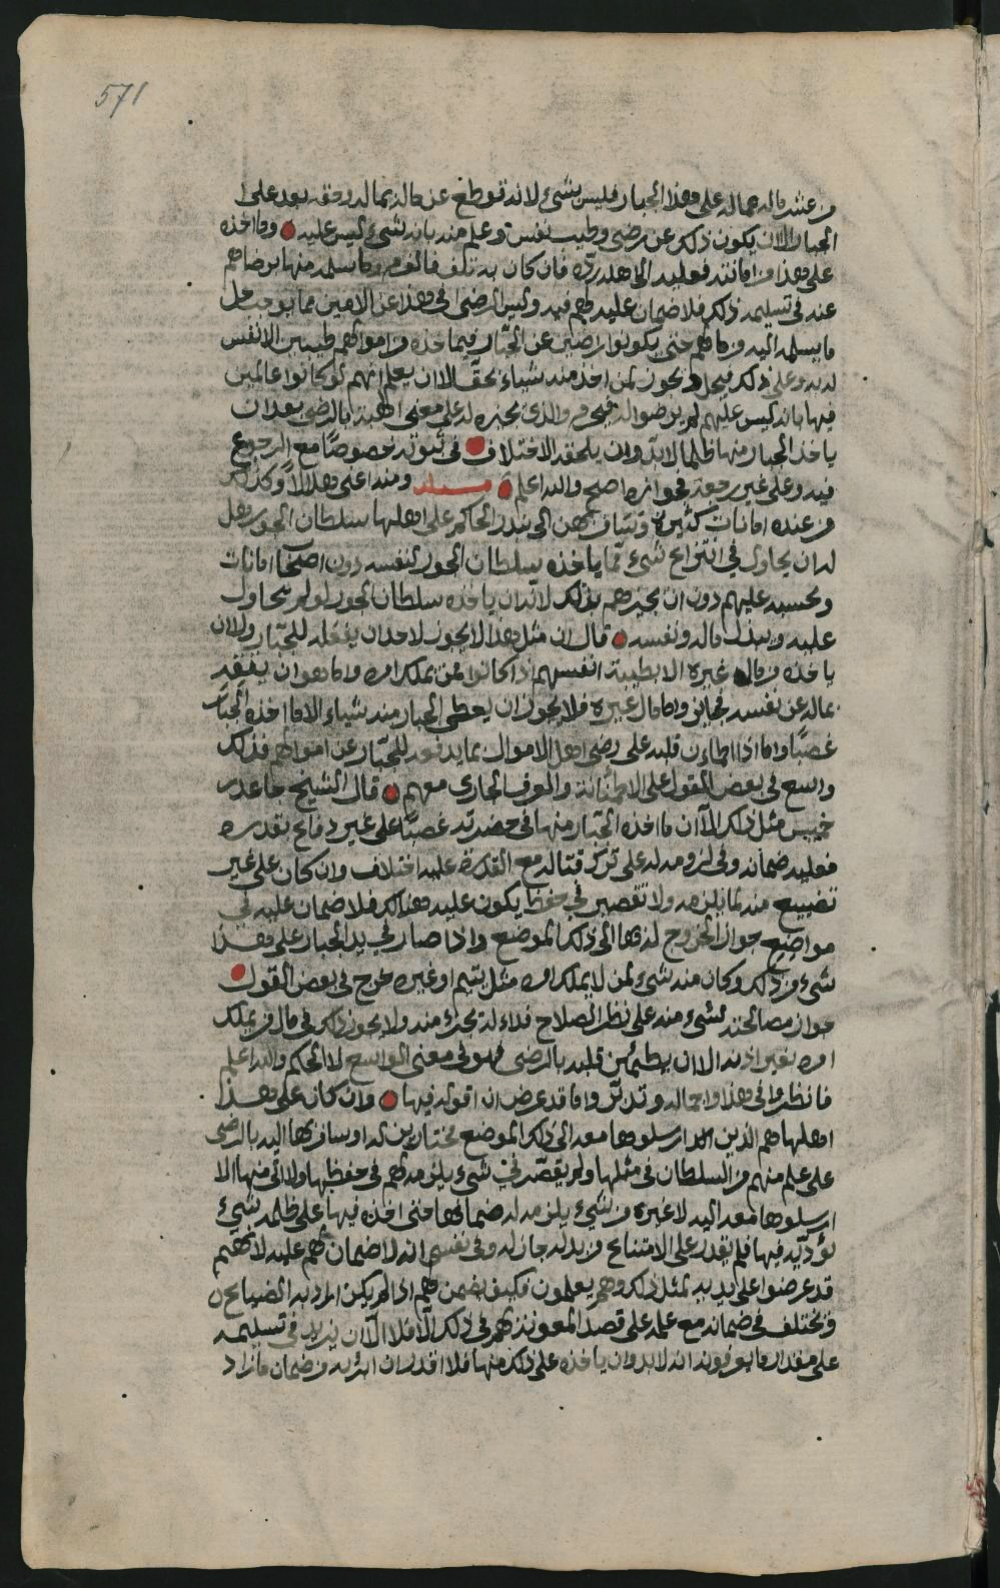 571
من عنده ماله عماله على هذا الجبار فليس بشيء لانه قد طغ عن ماله بماله وحقه بعد على
الجبار الا ان يكون ذلك عن رضى وطيب نفس وعلم منه بانه شيء ليس عليه وما اخذه
على هذا من امانته فعليه الى اهله رده فان كان به تلف فالغرم وما يسلمه منها برضاهم
عنه في تسليمه ذلك فلا ضمان عليه لهم فيه وليس الرضى في هذا عن الامين مما يوجب حل
ما يسلمه اليه من مالهم حتى يكونوا راضين عن الجبار فيما اخذه من اموالهم طيبين الانفس
له به وعلى ذلك فيحل ويجوز لمن اخذ منه شياء بحق الا ان يعلم انهم لو كانوا عالمين
فيها بانه ليس عليهم لم يرضوا له فيحرم والذي يجيزه له على معنى الهبة بالرضى بعد ان
ياخذ الجبار منها ظلما لابد وان يلحقه الاختلاف في ثبوته خصوصا مع الرجوع
فيه وعلى غير رجعة فجوازه اصح والله اعلم مسئلة ومنه اعني هلالا وكذلك
من عنده امانات كثيرة وتسافر بهن الى بندر الحاكم على اهلها سلطان الجور هل
له ان يحاول في انتزاع شيء مما ياخذه سلطان الجور لنفسه دون اصحاب امانات
ويحسبه عليهم دون ان يخبرهم بذلك لانه ان ياخذه سلطان الجور لو لم يحاول
عليه ويبذل ماله ونفسه قال ان مثل هذا لا يجوز لاحد ان يفعله للجبار ولا ان
ياخذه من مال غيره الا بطيبة انفسهم اذا كانوا ممن يملك امره واما هو ان يفتد
بماله عن نفسه فجايز واما مال غيره فلا يجوز ان يعطى الجبار منه شياء الا ما اخذه الجبار
غصبا واما اذا اطمان قلبه على رضى اهل الاموال بما يدفعه للجبار عن اموالهم فذلك
واسع في بعض القول على الاطمئنانة والعرف الجاري معهم قال الشيخ جاعد بن
خميس مثل ذلك الا ان ما اخذه الجبار منها في حضرته غصبا على غير دفاع بقدره
فعليه ضمانه وفي لزومه له على ترك قتاله مع القدرة عليه اختلاف وان كان على غير
تضييع منه لما يلزمه ولا تقصير في حفظ يكون عليه هنالك فلا ضمان عليه في
مواضع جواز الخروج له بها الى ذلك الموضع واذا صار في يد الجبار على هذا
شيء من ذلك وكان منه شيء لمن لا يملك امره مثل يتيم او غيره خرج في بعض القول
جواز مصالحته لشيء منه على نظر الصلاح فداء له بجزء منه ولا يجوز ذلك في مال من يملك
امره بغير اذنه الا ان يطمئن قلبه بالرضى فهو في معنى الواسع لا الحكم والله اعلم
فانظر وا في هذا واجماله وتدبر واما قد عرض ان اقوله فيها وان كان على هذا
اهلها هم الذين ارسلوها معه الى ذلك الموضع مختارين له او سافر بها اليه بالرضى
على علم منهم من السلطان في مثلها ولم يقصر في شيء يلزمه لهم في حفظها ولا اتى منها الا
ارسلوها معه اليه لا غيره من شيء يلزمه له ضمانها حتى اخذه فيها على ظلمه شيء
يؤديه فيها فلم يقدر على الامتناع من بذله جاز له وفي نفسي انه لا ضمان لهم عليه لانهم
قد عرضوا على يديه لمثل ذلك وهم يعلمون فكيف يضمن لهم اذا لم يكن المراد به الضياع
ويختلف في ضمانه مع علمه على قصد المعونة لهم في ذلك الا فلا الا ان يزيد في تسليمه
على مقدار ما يعرفونه انه لابد وان ياخذه على ذلك منها فلا اقدر ان ابرئه من ضمان ما زاد